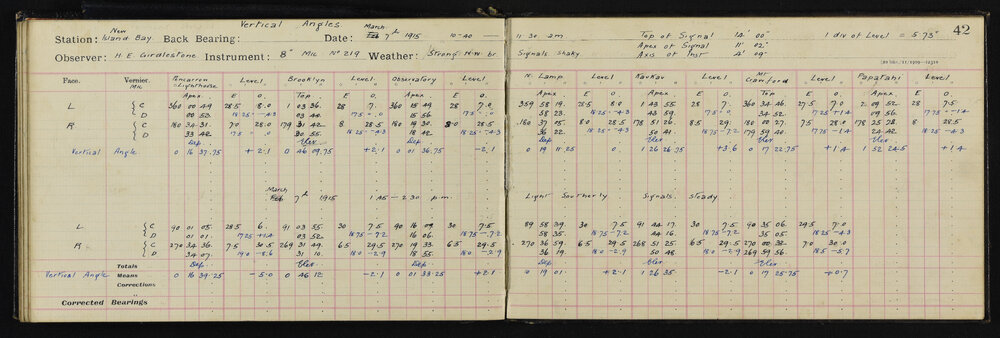 Vertical Angles.
New March
Station: Island Bay Back Bearing: Date: Feb 7th 1915 10-40 —
Observer: H E Girdlestone Instrument: 8" Mic No 219 Weather: Strong N.W. br.
Face. Vernier. Mic Pencarrow Lighthouse Level Brooklyn Level Observatory Level
Apex. E O. Top. E O. Apex. E O.
L C 360 00 49 28.5 8.0 1 03 36. 28 7. 360 15 49 28 7.0
D 00 53. 18.25 -4.3 03 40. 17.5 = 0 15 56 17.5 = .0
R C 180 34.31 7.0 28.0 179 31 42 8 28.5 180 19 30 8.0 28.5
D 33 42 17.5 = 0 30 55. 18.25 -4.3 18 42 18.25 -4.3
Dep. Elev. Dep.
Vertical Angle 0 16 37.75 +2.1 0 46 09.75 +2.1 0 01 36.75 -2.1
March
Feb 7th 1915 1 45 - 2 30 p.m.
L C 90 01 05. 28.5 6. 91 03 55. 30 7.5 90 16 09 30 7.5
D 01 01. 17.25 +1.4 03 52. 18.75 -7.2 16 06. 18.75 -7.2
R C 270 34 36. 7.5 30.5 269 31 49. 6.5 29.5 270 19 33 6.5 29.5
D 34 07. 19.0 -8.6 31 10. 18.0 -2.9 18 55. 18.0 -2.9
Totals Dep. Elev. Dep.
Vertical Angle Means 0 16 39.25 -5.0 0 46 12. -2.1 0 01 33.25 +2.1
Corrections
Corrected Bearings
42
11 30 am Top of Signal 12' 00" 1 div of Level = 5.73"
Apex of Signal 11' 02"
Signals shaky Axis of Inst 4' 09"
N. Lamp Level Kaukau Level Mt Crawford Level Papatahi Level
Apex. E O. Apex. E O. Top E O. Apex E O.
359 58 19. 28.5 8.0 1 43 55. 28 7. 360 34 46. 27.5 7.0 2 09 52. 28 7.5
38 23. 18.25 -4.3 43 59. 17.5 = 0 34 52. 17.25 +1.4 09 56. 17.75 -1.4
180 37 15. 8.0 28.5 178 51 26. 8.5 29. 180 00 27. 7.5 28.0 178 25 28 8 28.5
36 22. 18.25 -4.3 50 41. 18.75 -7.2 179 59 40. 17.75 -1.4 24 42 18.25 -4.3
Dep. Elev. Elev. Elev.
0 19 11.25 0 1 26 26.75 +3.6 0 17 22.75 +1.4 1 52 24.5 +1.4
Light Southerly Signals steady
89 58 39. 30 7.5 91 44 17. 30 7.5 90 35 06. 29.5 7.0
58 35. 18.75 -7.2 44 16. 18.75 -7.2 35 05. 18.25 -4.3
270 36 59. 6.5 29.5 268 51 25. 6.5 29.5 270 00 32. 7.0 30.0
36 19. 18.0 -2.9 50 48. 18.0 -2.9 269 59 56. 18.5 -5.7
Dep. Elev. Elev.
0 19 01. +2.1 1 26 35. -2.1 0 17 25.75 +0.7